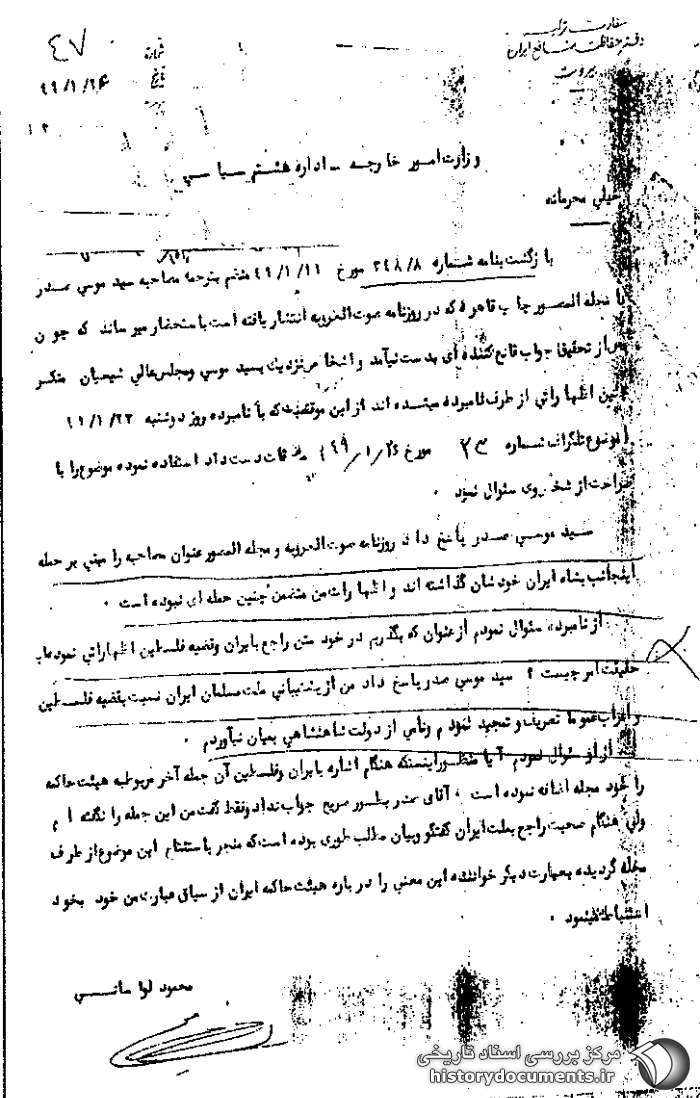 سفارت ترکیه
دفتر حفاظت منافع ایران
بیروت
۴۷
شماره
تاریخ ۴۹/۱/۲۴
وزارت امور خارجه ــ اداره هشتم سیاسی
خیلی محرمانه
بازگشت بنامه شماره ۲۴۸/۸ مورخ ۴۹/۱/۱۱ متضم بترجمه مصاحبه سید موسی صدر
با مجله المصور چاپ قاهره که در روزنامه صوت العروبه انتشار یافته است با ستحضار میرساند که چون
پس از تحقیق جواب قانع کننده ای بدست نیآمد و اشخاص نزدیک بسید موسی ومجلس عالی شیعیان منکر
چنین اظهاراتی از طرف نامبرده میشده اند از این موقعیت که با نامبرده روز دوشنبه
موضوع تلگراف شماره ۲۳ مورخ ملاقات دست داد استفاده نموده موضوع را با
صراحت از شخص وی سئوال نمود .
سید موسی صدر پاسخ داد روزنامه صوت العروبه و مجله المصور عنوان مصاحبه را مبنی بر حمله
اینجانب بشاه ایران خودشان گذاشته اند و اظهارات من متضمن چنین حمله ای نبوده است .
از نامبرده سئوال نمودم از عنوان که بگذریم در خود متن راجع بایران وقضیه فلسطین اظهاراتی نموده اید
حقیقت امر چیست ؟ سید موسی صدر پاسخ داد من از پشتیبانی ملت مسلمان ایران نسبت بقضیه فلسطین
و اعراب عموما تعریف و تمجید نمودم ونامی از دولت شاهنشاهی بمیان نیآوردم .
از او سئوال نمودم آیا منظور اینستکه هنگام اشاره بایران وفلسطین آن جمله آخر مربوط به هیئت حاکمه
را خود مجله اضافه نموده است ، آقای صدر بطور صریح جواب نداد وفقط گفت من این جمله را نگفته ام
ولی هنگام صحبت راجع بملت ایران گفتگو وبیان مطلب طوری بوده است که منجر باستنتاج این موضوع از طرف
مجله گردیده بعبارت دیگر خواننده این معنی را در باره هیئت حاکمه ایران از سیاق عبارت من خود بخود
استنباط مینمود .
محمود لواسانی
مرکز بررسی اسناد تاریخی
historydocuments.ir